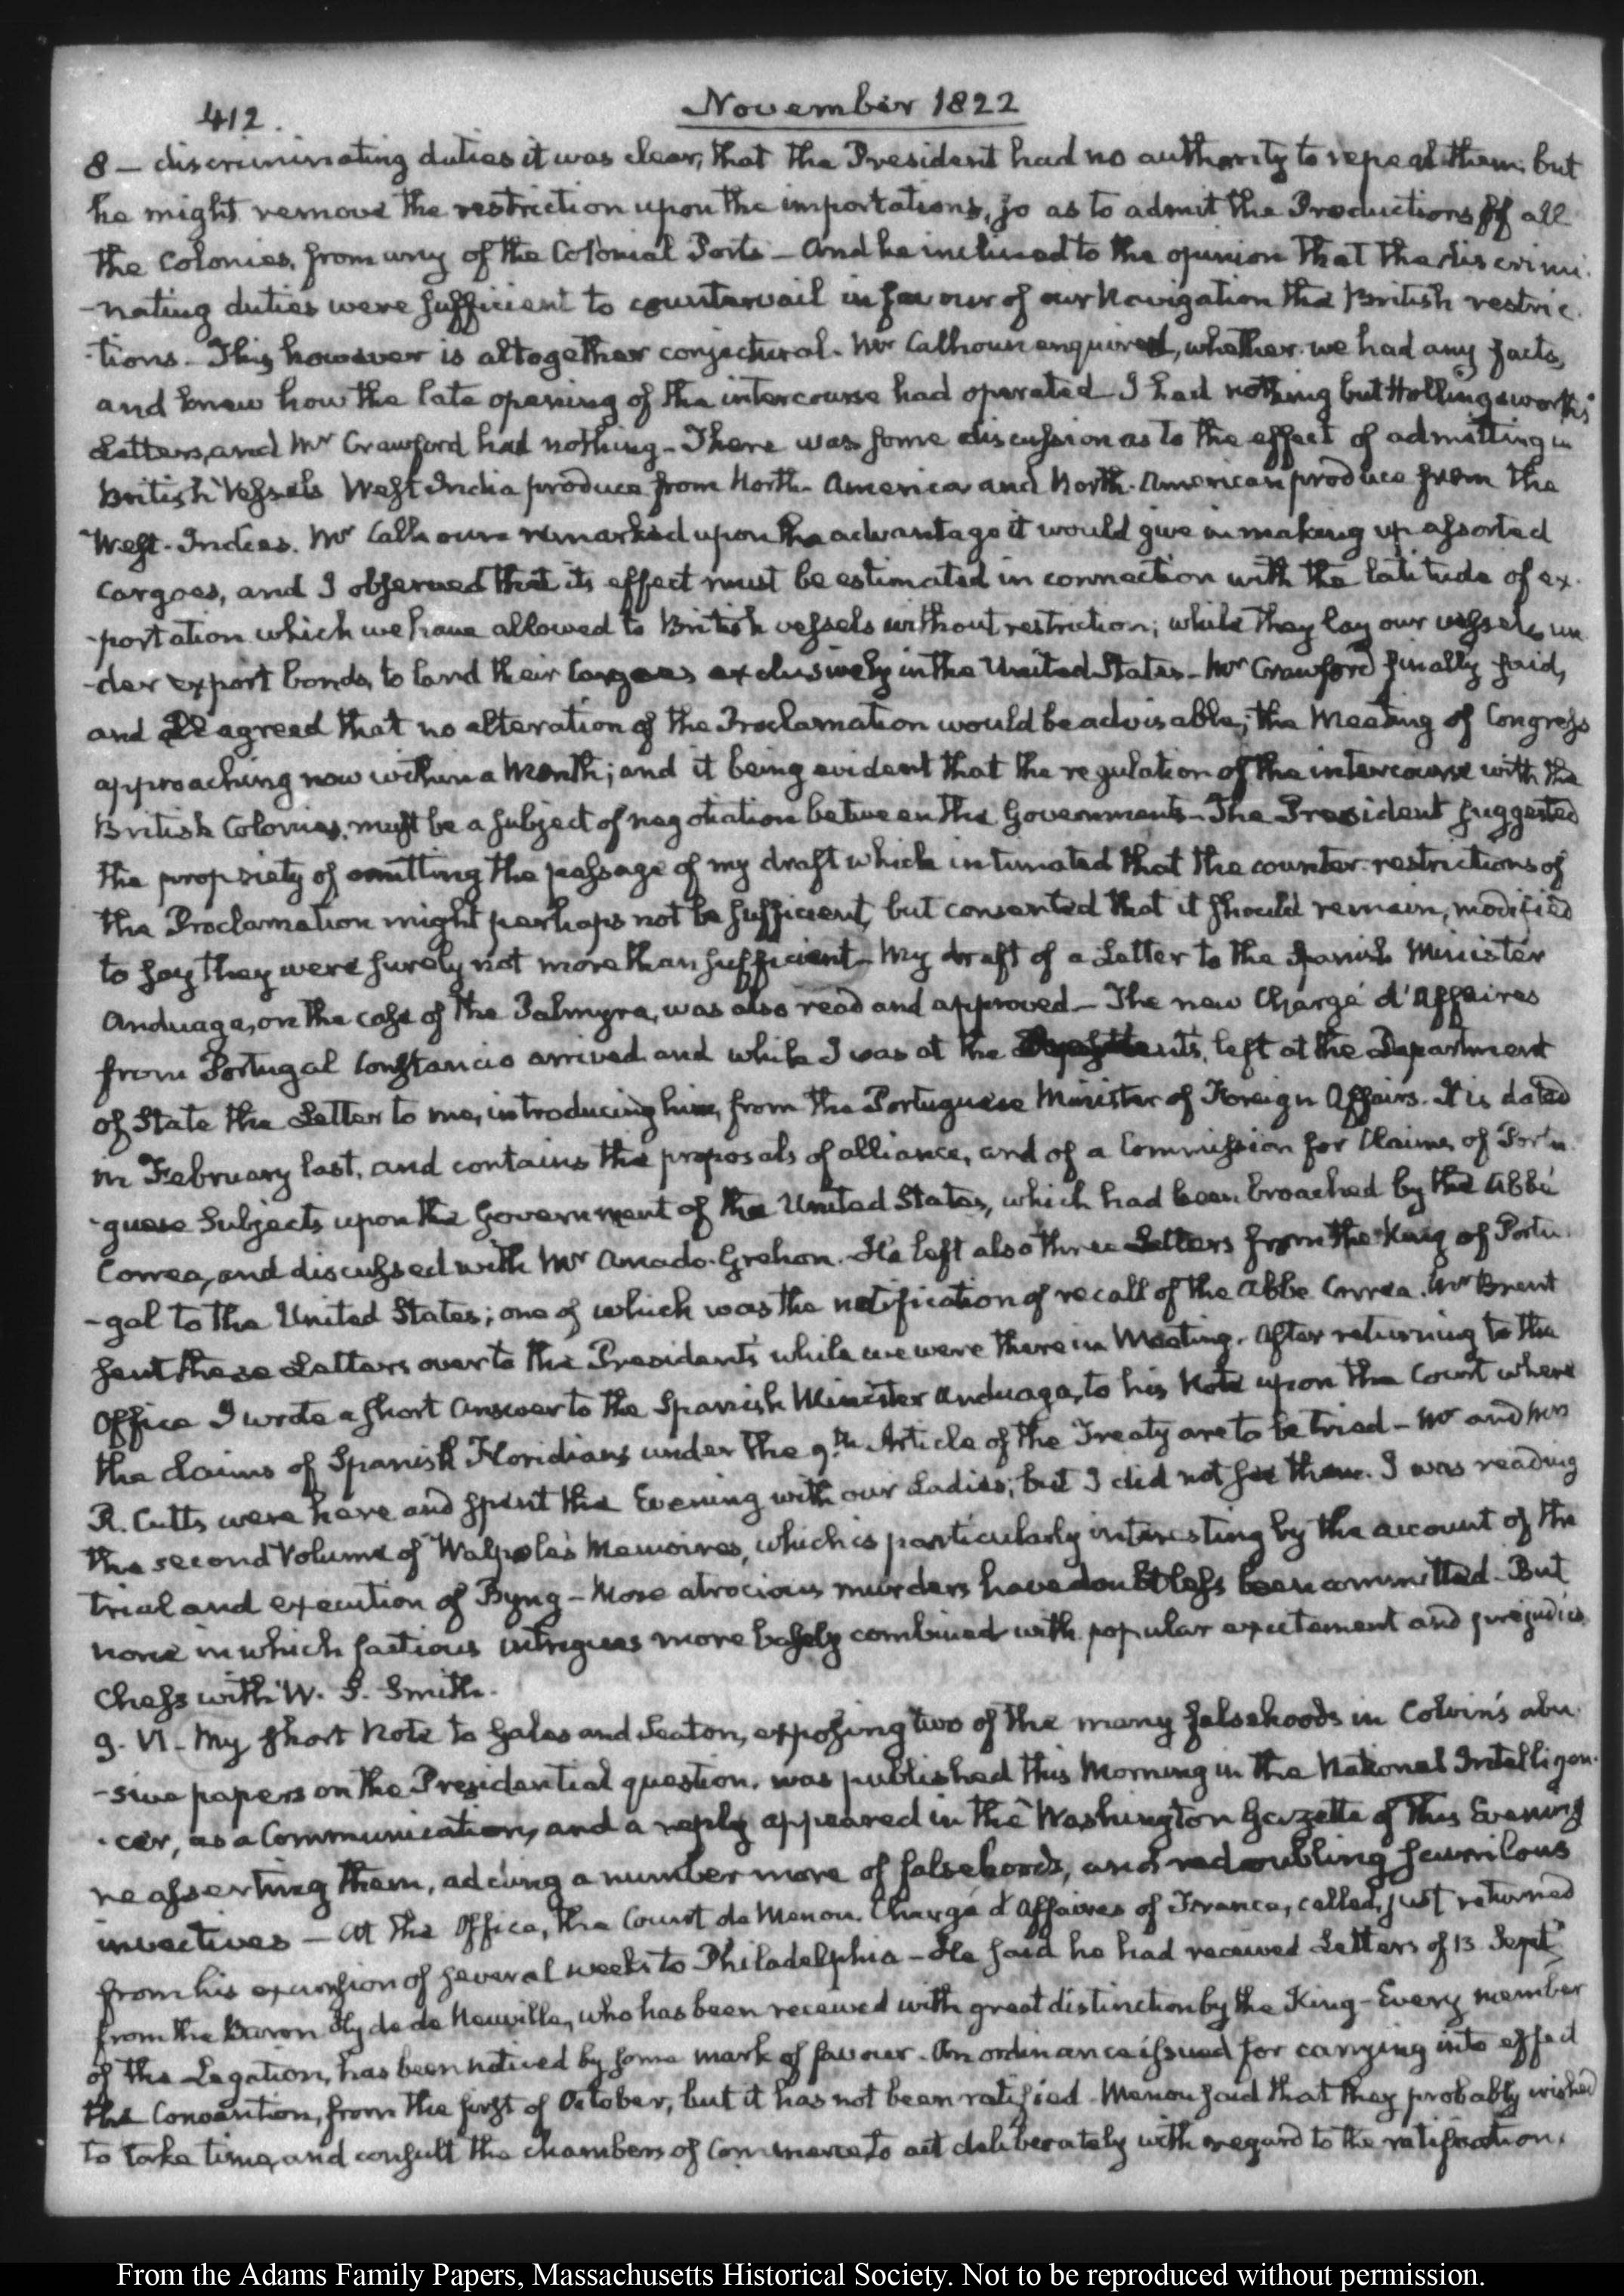 412.
November 1822
8 — discriminating duties it was clear, that the President had no authority to repeal them, but
he might remove the restriction upon the importations, so as to admit the Productions of all
the Colonies, from any of the Colonial Ports — And he inclined to the opinion that the discrimi-
-nating duties were sufficient to countervail in favour of our Navigation the British restric-
-tions — This however is altogether conjectural. Mr Calhoun enquired, whether we had any facts,
and knew how the late opening of the intercourse had operated — I had nothing but Hollingsworth's
Letters, and Mr Crawford had nothing — There was some discussion as to the effect of admitting in
British Vessels West-India produce from North-America and North-American produce from the
West-Indies. Mr Calhoun remarked upon the advantage it would give in making up assorted
Cargoes, and I observed that its effect must be estimated in connection with the latitude of ex-
-portation which we have allowed to British vessels without restriction; while they lay our vessels un-
-der export bonds, to land their Cargoes exclusively in the United States — Mr Crawford finally said,
and all agreed that no alteration of the Proclamation would be advisable; the Meeting of Congress
approaching now within a Month; and it being evident that the regulation of the intercourse with the
British Colonies, must be a subject of negotiation between the Governments — The President suggested
the propriety of omitting the passage of my draft which intimated that the counter-restrictions of
the Proclamation might perhaps not be sufficient, but consented that it should remain, modified
to say they were surely not more than sufficient — My draft of a Letter to the Spanish Minister
Anduaga, on the case of the Palmyra, was also read and approved — The new Chargé d'Affaires
from Portugal Constancio arrived and while I was at the President's, left at the Department
of State the Letter to me, introducing him, from the Portuguese Minister of Foreign Affairs. It is dated
in February last, and contains the proposals of alliance, and of a Commission for Claims of Portu-
-guese Subjects upon the Government of the United States, which had been broached by the Abbé
Correa, and discussed with Mr Amado-Grehon. He left also three Letters from the King of Portu-
-gal to the United States; one of which was the notification of recall of the Abbe Correa. Mr Brent
sent these Letters over to the President's while we were there in Meeting. After returning to the
Office I wrote a short Answer to the Spanish Minister Anduaga, to his Note upon the Court where
the claims of Spanish Floridians under the 9th Article of the Treaty are to be tried — Mr and Mrs
R. Cutts were here and spent the Evening with our Ladies; but I did not see them. I was reading
the second Volume of Walpole's Memoires, which is particularly interesting by the account of the
trial and execution of Byng — More atrocious murders have doubtless been committed — But
none in which factious intrigues more basely combined with popular excitement and prejudice.
Chess with W. S. Smith.
9. VI — My short Note to Gales and Seaton, exposing two of the many falsehoods in Colvin's abu-
-sive papers on the Presidential question, was published this Morning in the National Intelligen-
-cer, as a Communication, and a reply appeared in the Washington Gazette of this Evening
reasserting them, adding a number more of falsehoods, and redoubling scurrilous
invectives — At the Office, the Count de Menou, Chargé d'Affaires of France, called, just returned
from his excursion of several weeks to Philadelphia — He said he had received Letters of 13 Septr
from the Baron Hyde de Neuville, who has been received with great distinction by the King — Every member
of the Legation, has been noticed by some mark of favour. An ordinance issued for carrying into effect
the Convention, from the first of October, but it has not been ratified — Menou said that they probably wished
to take time, and consult the chambers of Commerce, to act deliberately with regard to the ratification.
From the Adams Family Papers, Massachusetts Historical Society. Not to be reproduced without permission.